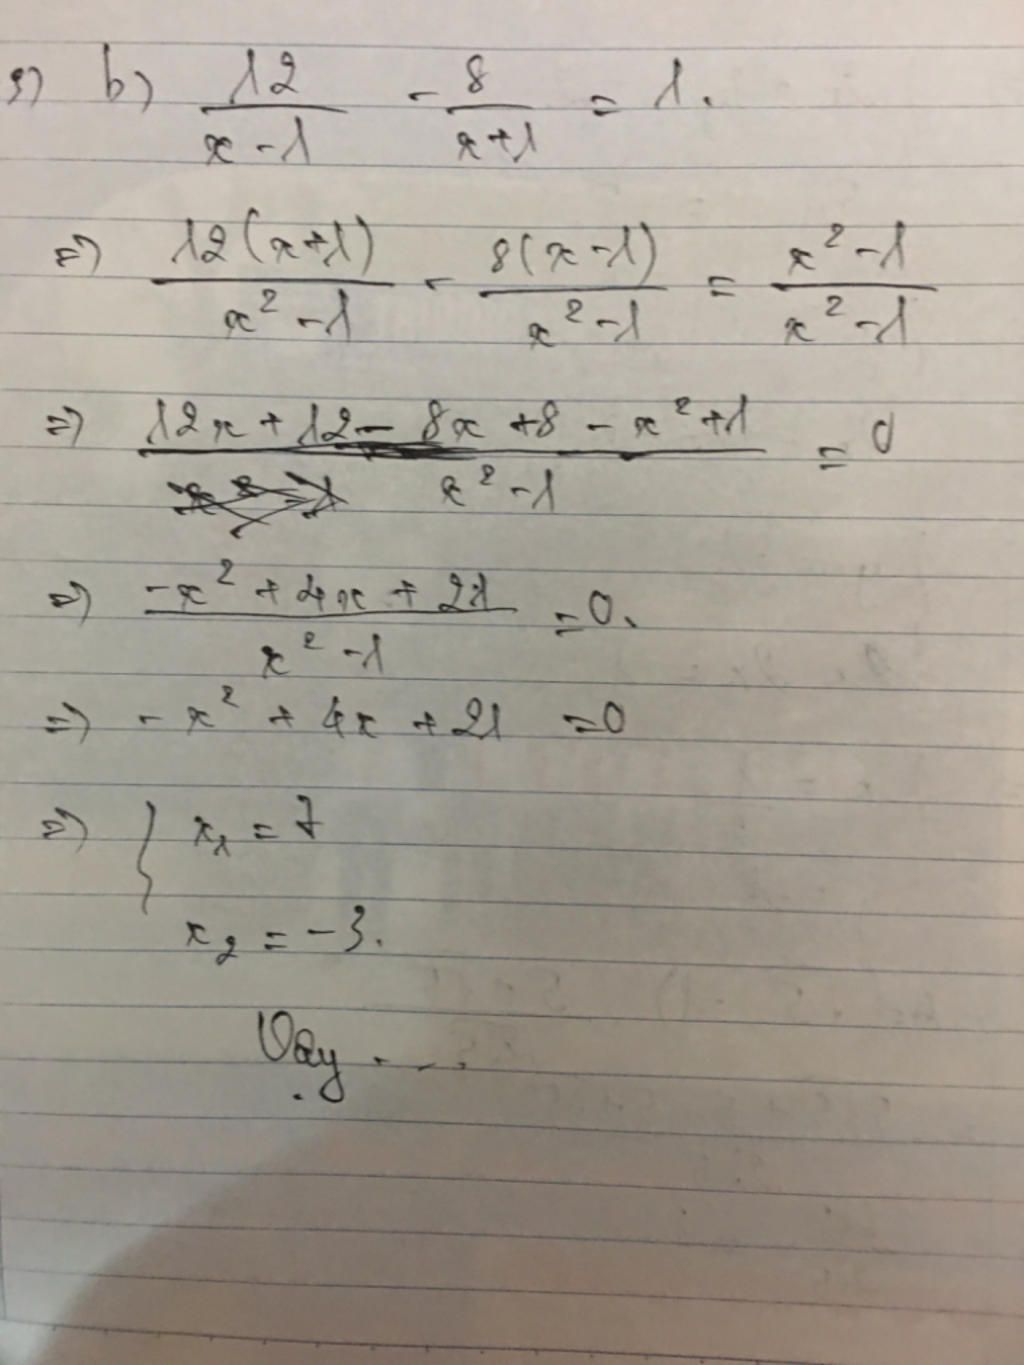 3) b) 12/(x-1) - 8/(x+1) = 1.
=) 12(x+1)/(x²-1) - 8(x-1)/(x²-1) = (x²-1)/(x²-1)
=) (12x + 12 - 8x + 8 - x² + 1)/(x²-1) = 0
=) (-x² + 4x + 21)/(x²-1) = 0.
=) -x² + 4x + 21 = 0
=) { x₁ = 7
x₂ = -3.
Vậy ...